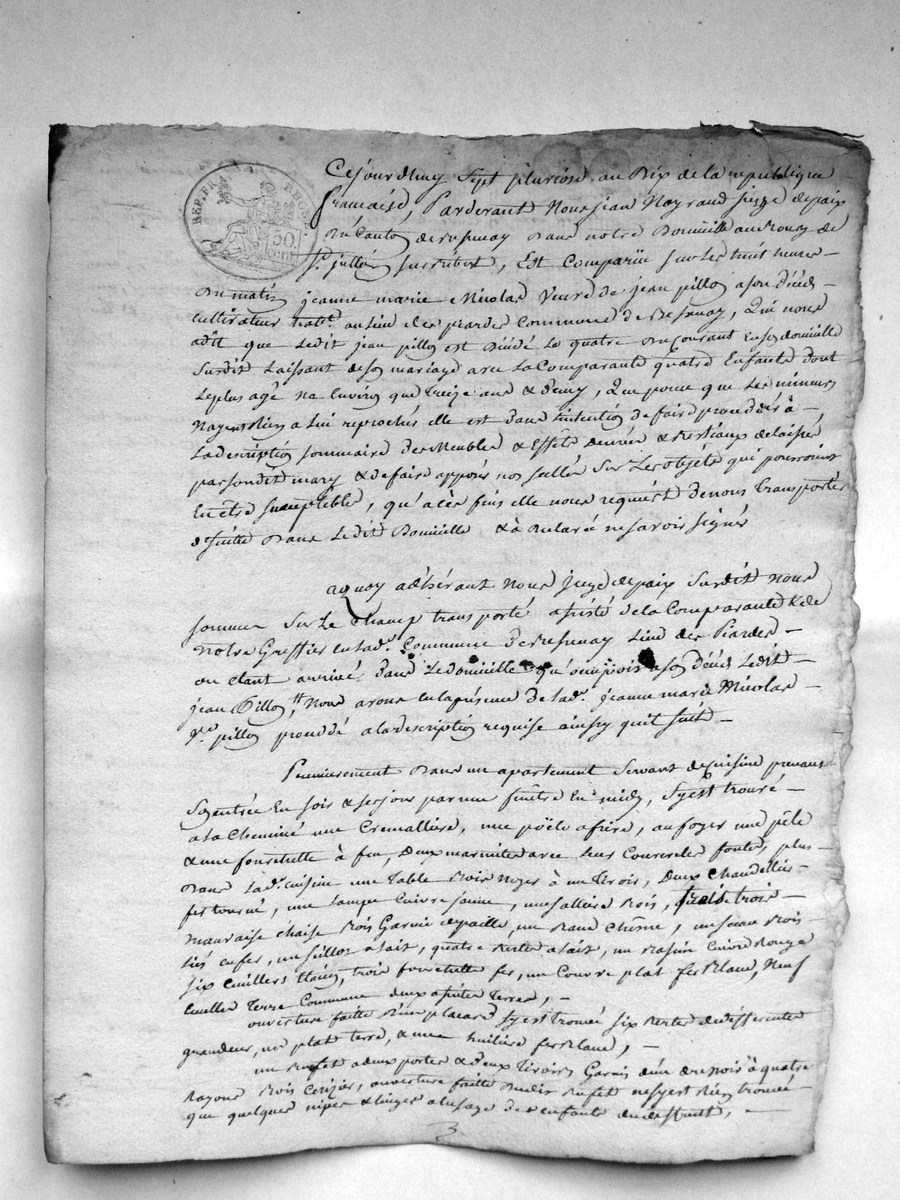 REP. FRA.
50
cent
Cejourdhuy Sept pluviose an Dix de la republique
francaise, Pardevant Nous jean Noyraud juge depaix
Du Canton de Bussunay Dans notre Domicille au Bourg de
St. jullien, Est Comparüe Sur Les huit heures
Du matin jeanne marie Nicolas Veuve de jean pillon a son décés
cultivateur au Lieu des piardes Commune de, Qui nous
a dit que Ledit jean pillon est Décédé Le quatre Du Courant en son domicille
Susdit Laissant de son mariage avec La Comparante quatre Enfants dont
Le plus agé na Environ que Treize ans & demy, Que pour que Les mineurs
Nayent Rien a Lui reprochér elle est Dans Lintention de faire procedér à
La description Sommaire Des Meubles & Effets denrées & Bestiaux delaissés
par son dit mary & de faire apposér nos scellés Sur Les objets qui pourroient
En être Susceptibles, qu'a cès fins elle nous requiert De nous Transportér
de suitte Dans Ledit Domicille & à Declaré ne savoir signér
aquoy adhérant Nous juge de paix Susdit Nous
sommes Sur Le champ transporté assisté de la Comparante & de
Notre Greffier en lad. Commune De Lieu des Piardes
ou étant arrivés Dans Le domicille qu'occupoit a son Décés Ledit
jean Pillon, Nous avons en la présence De lad. jeanne marie Nicolas
Ve. pillon procedé a la description requise ainsy quil suit
Premierement Dans un apartement Servant de cuisine prenant
Son entrée En soir & ses jours par une fenêtre En midy, Sy est trouvé
a La Cheminé une Cremallière, une poële a frire, au foyer une pêle
& une fourchette à feu, Deux marmites avec leurs Couvercles fonte, plus
Dans lad. cuisine une Table Bois Noyer à un Tiroir, Deux Chandelliers
fer tourné, une Lampe Cuivre jaune, une sallière Bois, trois
mauvaise chaise Bois Garnie de paille, un Banc chêne, un seau Bois
liés en fer, un seillot a lait, quatre a lait, un Bassin Cuivre Rouge
Six Cuillers Etain, trois fourchette fer, un Couvre plat fer Blanc, Neuf
Ecuelles Terre Commune deux assiettes Terres,
ouverture faitte D'un placard Sy est trouvé six de differentes
grandeur, un plat terre, & une huilière fer Blanc,
un Buffet a deux portes & deux Tiroirs Garni d'un dressoir à quatre
Rayons Bois Cerisier, ouverture faitte Dudit Bufet ne sy est Rien trouvé
que quelques nipes & Linges a Lusage des enfants du deffunt,
3